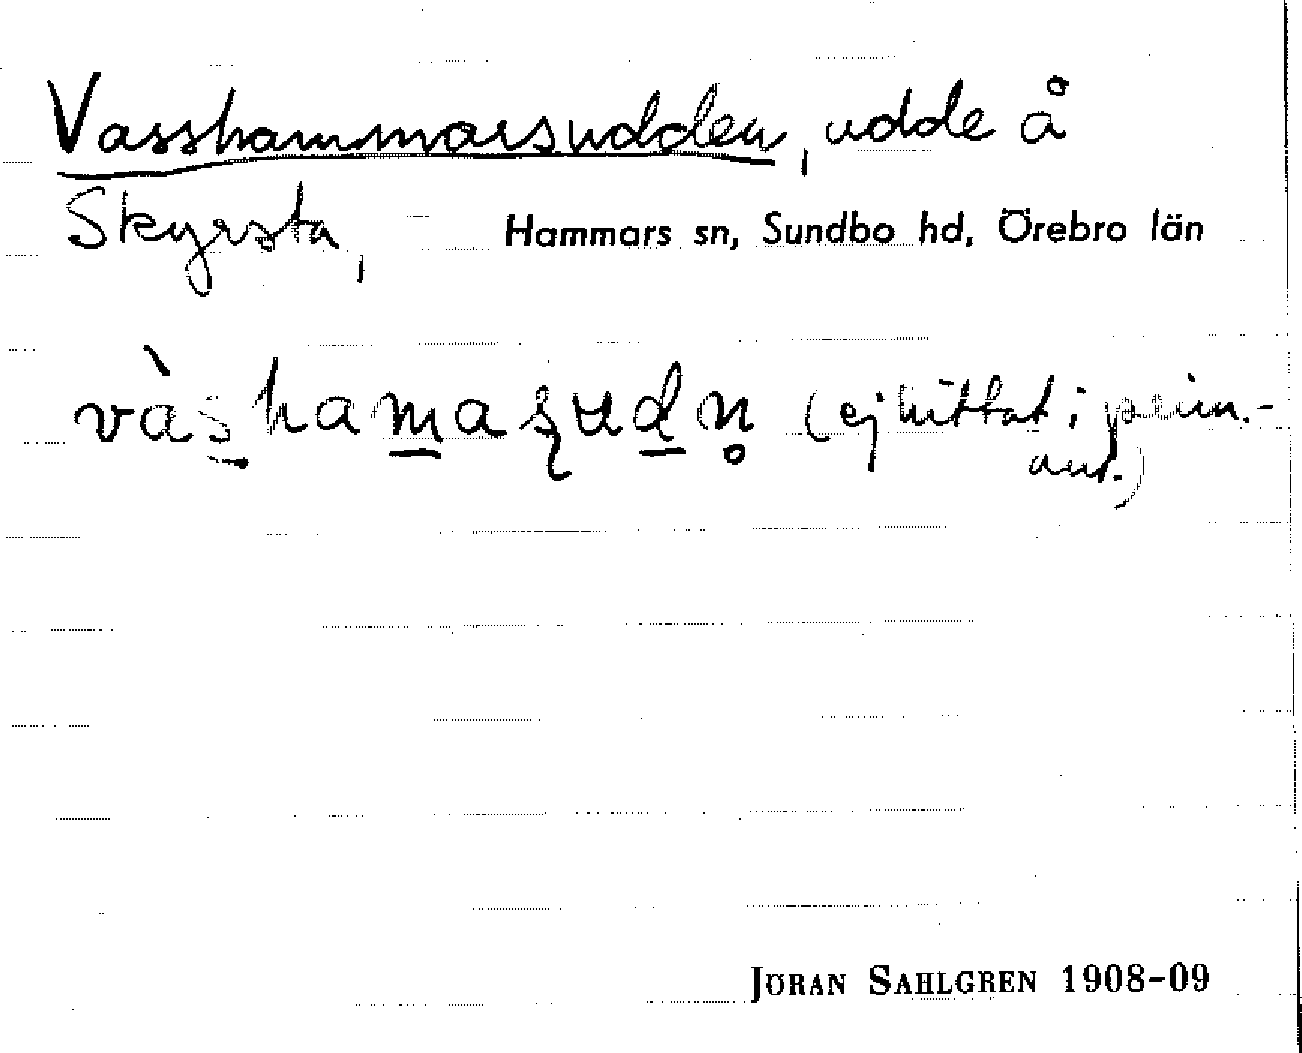 Vasshammarsudden, udde å
Skyrsta, Hammars sn, Sundbo hd, Örebro län
vàs̱hama̱ʂud̠n̥ (ej hittat i prim.-
ant.)
JÖRAN SAHLGREN 1908-09